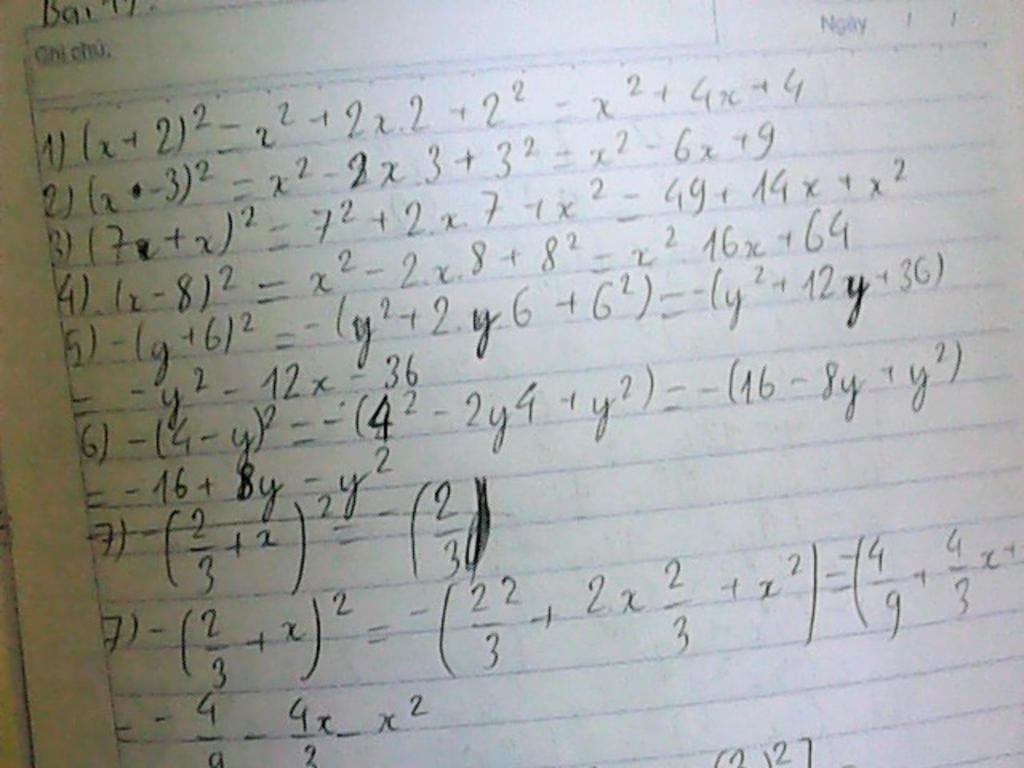 Bài 11.
Ghi chú: Ngày / /
1) (x + 2)² = x² + 2x.2 + 2² = x² + 4x + 4
2) (x - 3)² = x² - 2x.3 + 3² = x² - 6x + 9
3) (7 + x)² = 7² + 2.x.7 + x² = 49 + 14x + x²
4) (x - 8)² = x² - 2.x.8 + 8² = x² 16x + 64
5) -(y + 6)² = -(y² + 2.y.6 + 6²) = -(y² + 12y + 36)
= -y² - 12x - 36
6) -(4 - y)² = -(4² - 2y4 + y²) = -(16 - 8y + y²)
= -16 + 8y - y²
7) -(2/3 + x)² = -(2/3)
7) -(2/3 + x)² = -(2²/3 + 2x 2/3 + x²) = -(4/9 + 4/3 x +
= - 4/9 - 4x/3 - x²